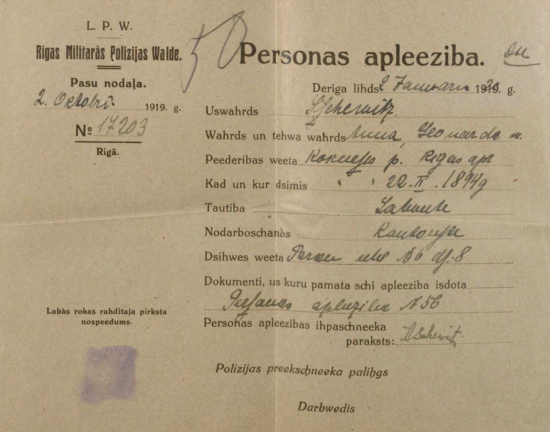 L. P. W.
Rigas Militarās Polizijas Walde.
Pasu nodaļa.
2. Octobri 1919. g.
№ 17203
Rīgā.
50
Personas apleeziba.
Deriga lihds 2 Januari 1920. g.
Uswahrds Scherwitz
Wahrds un tehwa wahrds Anna, Leonarda m.
Peederibas weeta Kokneses p. Rigas apr
Kad un kur dsimis " " 22. II. 1894g
Tautiba Latweete
Nodarboschanās
Dsihwes weeta № 6 dz. 8
Dokumenti, us kuru pamata schi apleeziba isdota
Personas apleeziba № 56
Personas apleezibas ihpaschneeka
paraksts: AScherwitz
Labās rokas rahditaja pirksta
nospeedums.
Polizijas preekschneeka palihgs
Darbwedis